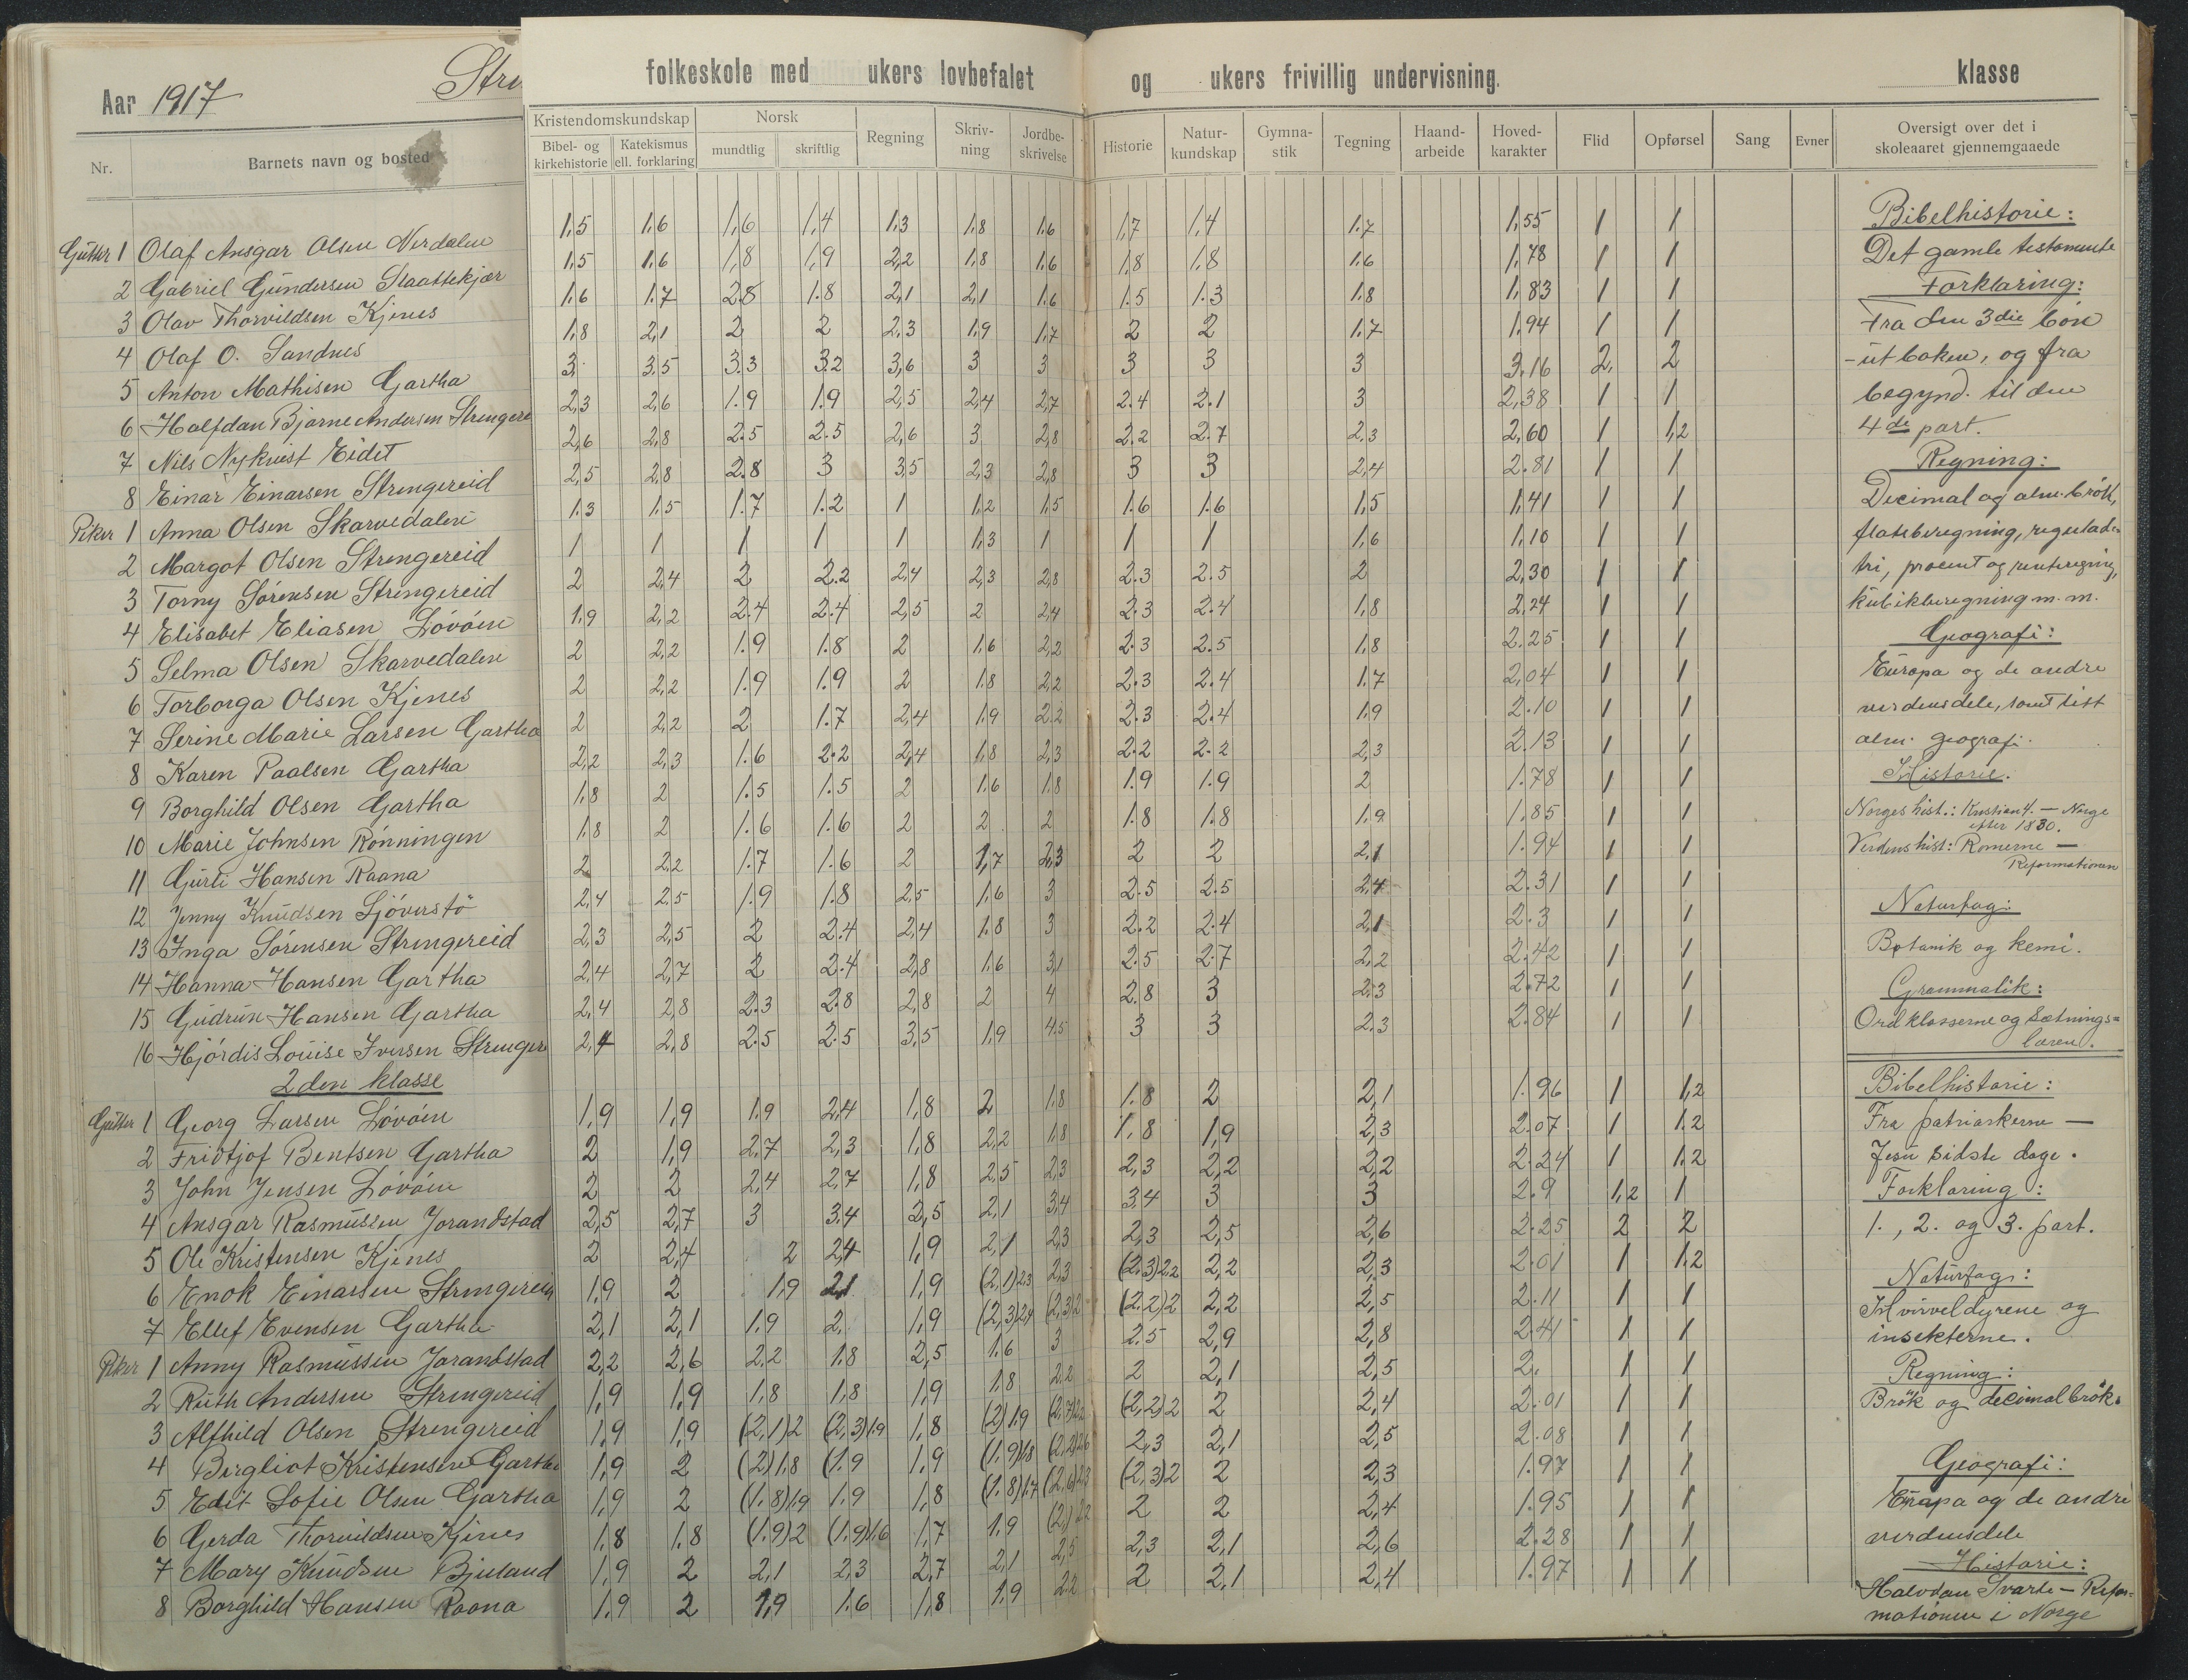 Aar 1917
Stre
folkeskole med ukers lovbefalet og ukers frivillig undervisning. klasse
Nr. Barnets navn og bosted
Kristendomskundskap Norsk Regning Skriv-ning Jordbe-skrivelse Historie Natur-kundskap Gymna-stik Tegning Haand-arbeide Hoved-karakter Flid Opførsel Sang Evner
Bibel- og kirkehistorie Katekismus ell. forklaring mundtlig skriftlig
Oversigt over det i skoleaaret gjennemgaaede
Gutter 1 Olaf Ansgar Olsen Nerdalen 1,5 1.6 1,6 1,4 1,3 1,8 1,6 1,7 1,4 1.7 1,55 1 1
2 Gabriel Gundersen Slaattekjær 1,5 1.6 1,8 1,9 2,2 1,8 1,6 1,8 1.8 1.6 1,78 1 1
3 Olav Thorvildsen Kjenes 1.6 1.7 2.8 1.8 2,1 2,1 1,6 1.5 1.3 1.8 1,83 1 1
4 Olaf O. Sandnes 1,8 2,1 2 2 2,3 1,9 1,7 2 2 1.7 1.94 1 1
5 Anton Mathisen Gartha 3 3.5 3.3 3.2 3,6 3 3 3 3 3 3.16 2 2
6 Halfdan Bjarne Andersen Strengere 2,3 2,6 1.9 1.9 2,5 2,4 2,7 2.4 2.1 3 2,38 1 1
7 Nils Nykvist Eidet 2,6 2,8 2.5 2.5 2,6 3 2,8 2.2 2.7 2.3 2,60 1 1,2
8 Einar Einarsen Strengereid 2,5 2,8 2.8 3 3,5 2,3 2,8 3 3 2,4 2.81 1 1
Piker 1 Anna Olsen Skarvedalen 1.3 1.5 1.7 1.2 1 1,2 1,5 1.6 1.6 1,5 1,41 1 1
2 Margot Olsen Strengereid 1 1 1 1 1 1,3 1 1 1 1,6 1,10 1 1
3 Torny Sørensen Strengereid 2 2,4 2 2.2 2,4 2,3 2,8 2.3 2.5 2 2,30 1 1
4 Elisabet Eliasen Løvøen 1,9 2,2 2.4 2.4 2,5 2 2,4 2.3 2.4 1,8 2,24 1 1
5 Selma Olsen Skarvedalen 2 2,2 1.9 1.8 2 1.6 2,2 2.3 2.5 1,8 2.25 1 1
6 Torborga Olsen Kjenes 2 2,2 1.9 1.9 2 1.8 2,2 2.3 2.4 1.7 2,04 1 1
7 Serine Marie Larsen Gartha 2 2,2 2 1.7 2,4 1,9 2.2 2.3 2.4 1,9 2.10 1 1
8 Karen Paalsen Gartha 2,2 2,3 1.6 2.2 2,4 1,8 2,3 2.2 2.2 2,3 2.13 1 1
9 Borghild Olsen Gartha 1.8 2 1.5 1.5 2 1.6 1.8 1.9 1.9 2 1.78 1 1
10 Marie Johnsen Rønningen 1.8 2 1.6 1.6 2 2 2 1.8 1.8 1.9 1.85 1 1
11 Gurli Hansen Raana 2 2.2 1.7 1.6 2 1,7 2,3 2 2 2.1 1.94 1 1
12 Jenny Knudsen Sjøverstø 2,4 2.5 1.9 1.8 2,5 1.6 3 2.5 2.5 2.4 2.31 1 1
13 Inga Sørensen Strengereid 2,3 2,5 2 2.4 2,4 1.8 3 2.2 2.4 2,1 2.3 1 1
14 Hanna Hansen Gartha 2,4 2,7 2 2.4 2,8 1.6 3,1 2.5 2.7 2,2 2.42 1 1
15 Gudrun Hansen Gartha 2,4 2,8 2.3 2.8 2,8 2 4 2.8 3 2.3 2.72 1 1
16 Hjørdis Louise Iversen Strenger 2,4 2,8 2.5 2.5 3,5 1,9 4.5 3 3 2,3 2.84 1 1
2den klasse
Gutter 1 Georg Larsen Løvøen 1,9 1,9 1.9 2.4 1,8 2 1.8 1.8 2 2,1 1.96 1 1,2
2 Fridtjof Bentsen Gartha 2 1,9 2.7 2,3 1,8 2,2 1.8 1.8 1,9 2,3 2.07 1 1.2
3 John Jensen Løvøen 2 2 2,4 2.7 1,8 2.5 2,3 2,3 2,2 2,2 2.24 1 1.2
4 Ansgar Rasmussen Jorandstad 2,5 2,7 3 3.4 2,5 2,1 3,4 3.4 3 3 2.9 1,2 1
5 Ole Kristensen Kjenes 2 2,4 2 2,4 1,9 2,1 2,3 2,3 2,5 2,6 2.25 2 2
6 Enok Einarsen Strengereid 1.9 2 1.9 2.1 1,9 (2,1)2.3 2,3 (2,3)2.2 2,2 2,3 2.01 1 1.2
7 Ellef Evensen Gartha 2,1 2,1 1.9 2. 1,9 (2,3)2.4 (2,3)2 (2.2)2 2,2 2,5 2.11 1 1
Piker 1 Anny Rasmussen Jorandstad 2,2 2,6 2.2 1.8 2,5 1.6 3 2.5 2,9 2,8 2.41 1 1
2 Ruth Andersen Strengereid 1,9 1,9 1,8 1,8 1,9 1.8 2.2 2 2,1 2,5 2. 1 1
3 Alfhild Olsen Strengereid 1,9 1,9 (2,1)2 (2,3)1.9 1,8 (2)1.9 (2,7)2.2 (2,2)2 2 2,4 2.01 1 1
4 Bergliot Kristensen Gartha 1,9 2 (2)1.8 (1.9 1,9 (1.9)1.8 (2,2)2.6 2,3 2,1 2,5 2.08 1 1
5 Edit Sofie Olsen Gartha 1,9 2 (1.8)1.9 1.9 1,8 (1.8)1.7 (2.6)2.3 (2,3)2 2 2,3 1.97 1 1
6 Gerda Thorvildsen Kjenes 1,8 1.8 (1.9)2 (1.9)1.6 1,7 1.9 2.2 2 2 2,4 1.95 1 1
7 Mary Knudsen Bjeland 1,9 2 2,1 2,3 2,7 2,1 2,5 2,3 2,1 2,6 2.28 1 1
8 Borghild Hansen Raana 1.9 2 1,9 1.6 1,8 1.9 2.2 2 2,1 2,4 1.97 1 1
Bibelhistorie:
Det gamle testamente
Forklaring:
Fra den 3die bøn
-ut boken, og fra
begynd. til den
4de part.
Regning:
Decimal og alm. brøk,
flateberegning, regulade-
tri, procent og renteregning,
kubikberegning m. m.
Geografi:
Europa og de andre
verdensdele, samt litt
alm. geografi.
Historie.
Norges hist.: Kristian 4. — Norge
efter 1830.
Verdenshist: Romerne —
Reformationen
Naturfag:
Botanik og kemi.
Grammatik:
Ordklasserne og Sætnings=
læren.
Bibelhistorie:
Fra patriarkerne —
Jesu sidste dage.
Forklaring:
1., 2. og 3. part.
Naturfag:
Hvirveldyrene og
insekterne.
Regning:
Brøk og decimalbrøk.
Geografi:
Europa og de andre
verdensdele
Historie:
Halvdan Svarte — Refor-
mationen i Norge